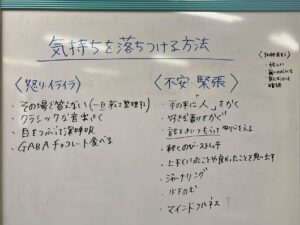 気持ちを落ちつける方法
〈怒り・イライラ〉
・その場で答えない(一旦
・クラシックな音楽きく
・目をつぶって深呼吸
・GABAチョコレート食べる
〈不安・緊張〉
・手の平に「人」をかく
・好きな香りをかぐ
・話をきいてもらって
・軽くのび・ストレッチ
・上手くいったことや良かったことを思い出す
・ジャーナリング
・水をのむ
・マインドフルネス